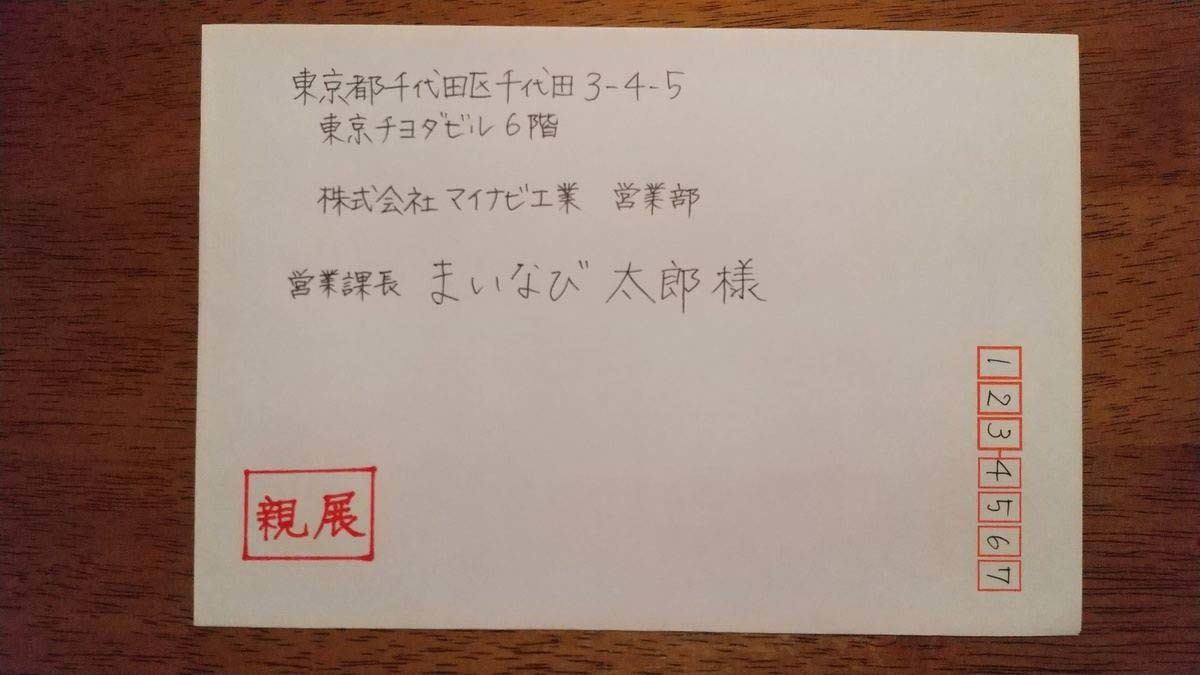 東京都千代田区千代田3-4-5
東京チヨダビル6階
株式会社マイナビ工業 営業部
営業課長 まいなび 太郎様
親展
1234567